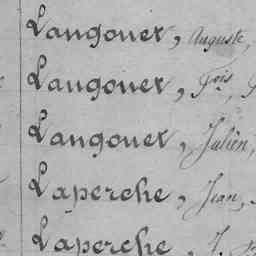 Langouet, Auguste,
Langouet, Fois,
Langouet, Julien,
Laperche, Jean,
Laperche, J.